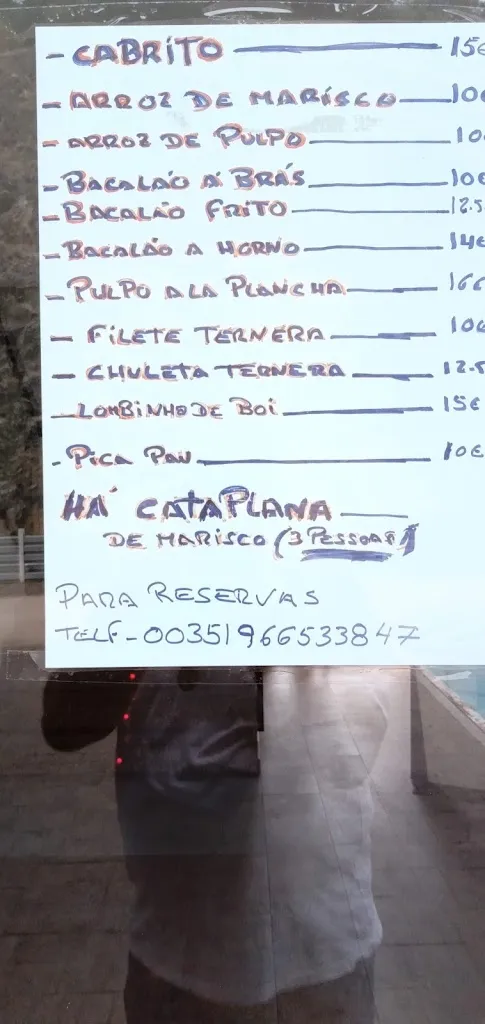 - CABRITO 15€
- ARROZ DE MARISCO 10€
- ARROZ DE PULPO 10
- BACALÃO A' BRÁS 10€
- BACALÃO FRITO 12.5
- BACALÃO A HORNO 14€
- PULPO A LA PLANCHA 16€
- FILETE TERNERA 10€
- CHULETA TERNERA 12.5
- LOMBINHO DE BOI 15€
- PICA PAU 10€
HÁ CATAPLANA
DE MARISCO (3 PESSOAS)
PARA RESERVAS
TELF - 00351966533847